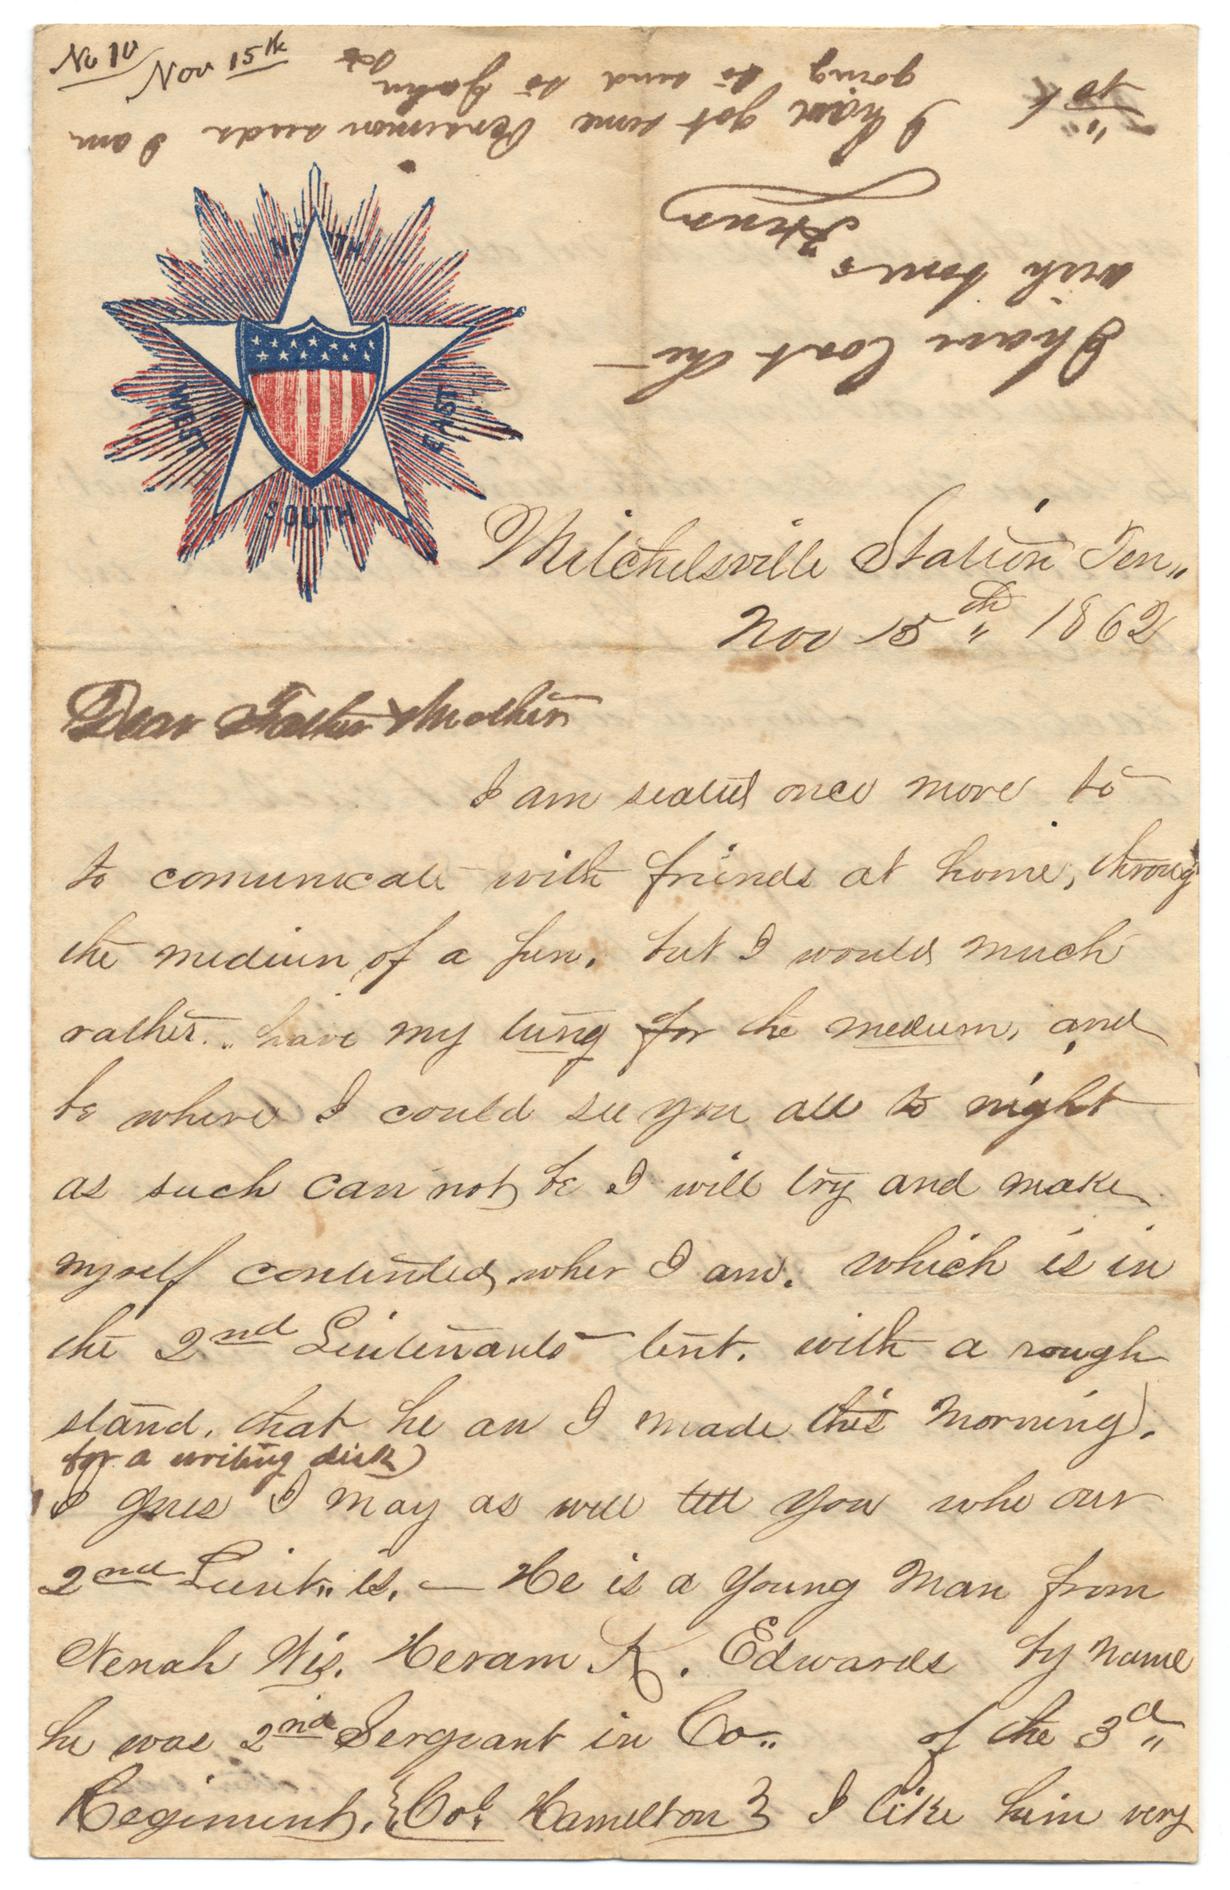 No 10 Nov 15th
I have got some Persimon seeds I am
going to send to John
I have lost the
wish bone
NORTH
WEST
EAST
SOUTH
Mitchelsville Station Ten,,
Nov 15th,, 1862
Dear Father & Mother
I am seated once more to
to comunicate with friends at home, throug
the medium of a pen. but I would much
rather.. have my tung for the medium, and
be where I could see you all to night
as such can not be I will try and make
myself contented wher I am. which is in
the 2nd Lieutenants tent. with a rough
stand, that he an I made this morning).
for a writing desk)
I gues I may as well tell you who our
2nd Lieut,, is. — He is a young man from
Nenah Wis. Heram K. Edwards by name
he was 2nd Sergeant in Co.. of the 3d,,
Regiment, {Col. Hamelton} I like him very